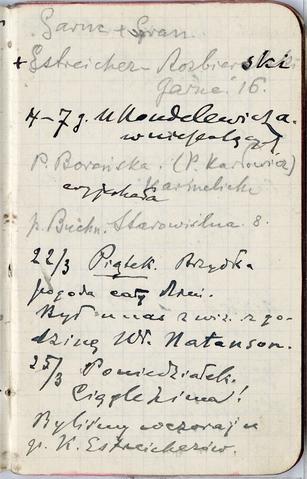 Garnc + Gran.
+ Estreicher - Rozbierski
Garnc. 16.
4-7 g. u Mondelewicza.
P. Boreńska. (P. Karłowicz)
wyjechała Karmelick
p. Buchn. Starowiślna 8.
22/3 Piątek. Brzydka
pogoda cały dzień.
Był u nas z wiz. z go-
dzinę Wł. Natanson.
25/3 Poniedziałek.
Ciągle zima!
Byliśmy wczoraj u
p. K. Estreicherów.